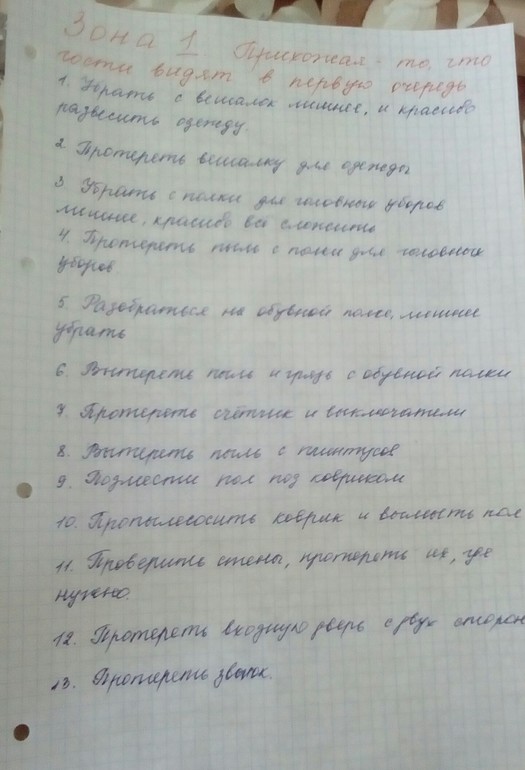 Зона 1 Прихожая - то, что
гости видят в первую очередь
1. Убрать с вешалок лишнее, и красиво
развесить одежду.
2 Протереть вешалку для одежды
3 Убрать с полки для головных уборов
лишнее, красиво всё сложить
4. Протереть пыль с полки для головных
уборов
5. Разобраться на обувной полке, лишнее
убрать
6. Вытереть пыль и грязь с обувной полки
7. Протереть счётчик и выключатели
8. Вытереть пыль с плинтусов
9. Подмести пол под ковриком
10. Пропылесосить коврик и вымыть пол
11. Проверить стены, протереть их, где
нужно.
12. Протереть входную дверь с двух сторон
13. Протереть звонок.